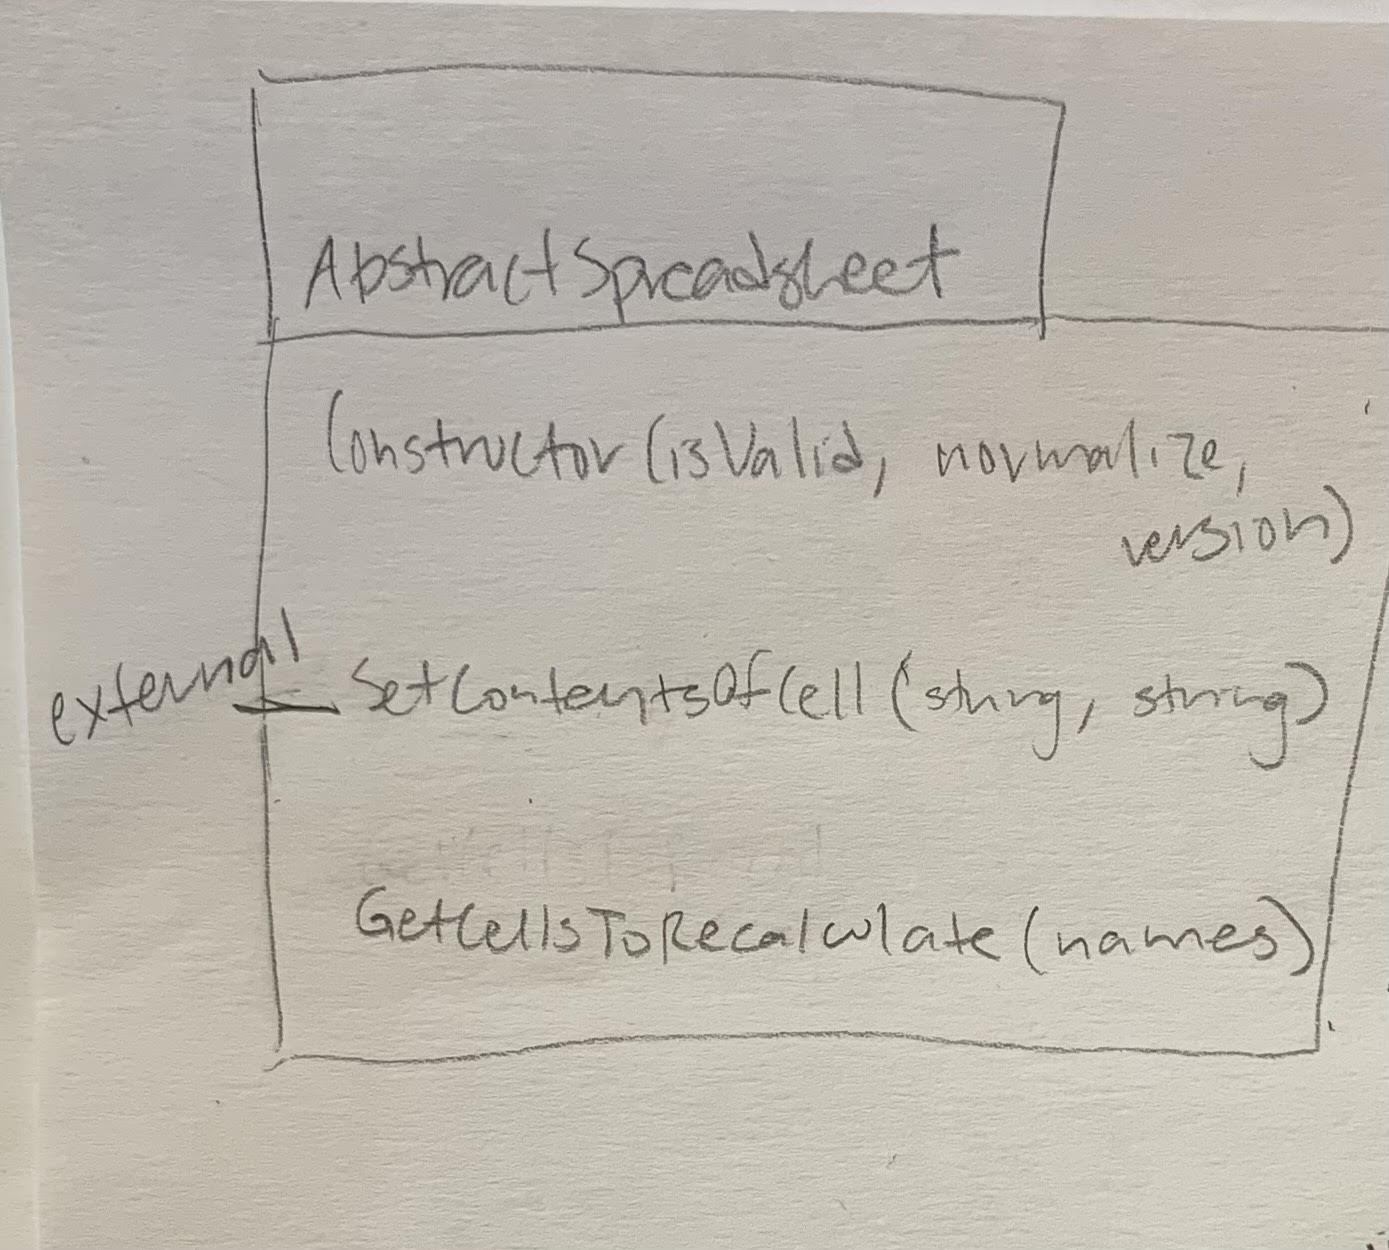 AbstractSpreadsheet
Constructor (isValid, normalize,
version)
external
SetContentsOfCell (string, string)
GetCellsToRecalculate (names)